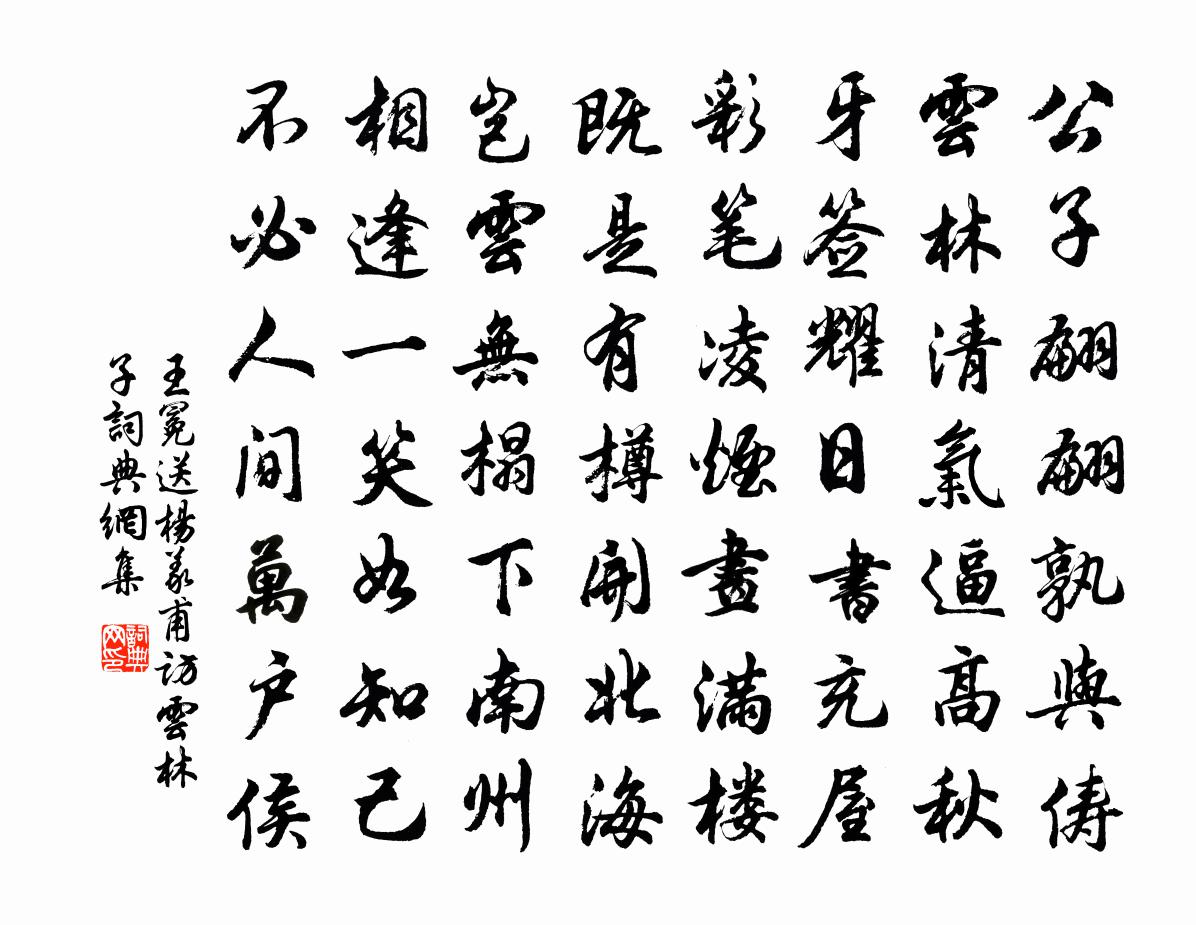 公子翩翩孰與儔
雲林清氣逼高秋
牙签耀日書充屋
彩笔凌煙畫满楼
既是有樽開北海
豈雲無榻下南州
相逢一笑如知己
不必人间萬户侯
王冕送楊義甫访雲林
子詞典網集
詞典网印